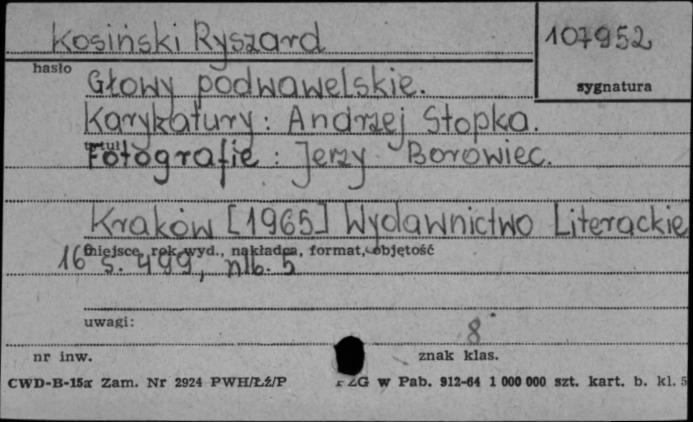 Kosiński Ryszard 107952
hasło sygnatura
Głowy podwawelskie.
Karykatury: Andrzej Stopka.
tytuł
Fotografie: Jerzy Borowiec.
Kraków [1965] Wydawnictwo Literackie
miejsce, rok wyd., nakładca, format, objętość
16° s. 499, nlb. 5
uwagi:
8
nr inw. znak klas.
CWD-B-15a Zam. Nr 2924 PWH/Łź/P PZG w Pab. 912-64 1 000 000 szt. kart. b. kl. 5